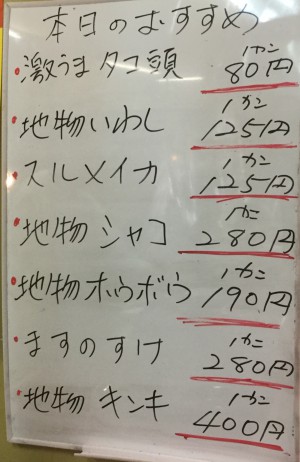 本日のおすすめ
激うまタコ頭 1カン 80円
地物いわし 1カン 125円
スルメイカ 1カン 125円
地物シャコ 1カン 280円
地物ホウボウ 1カン 190円
ますのすけ 1カン 280円
地物キンキ 1カン 400円